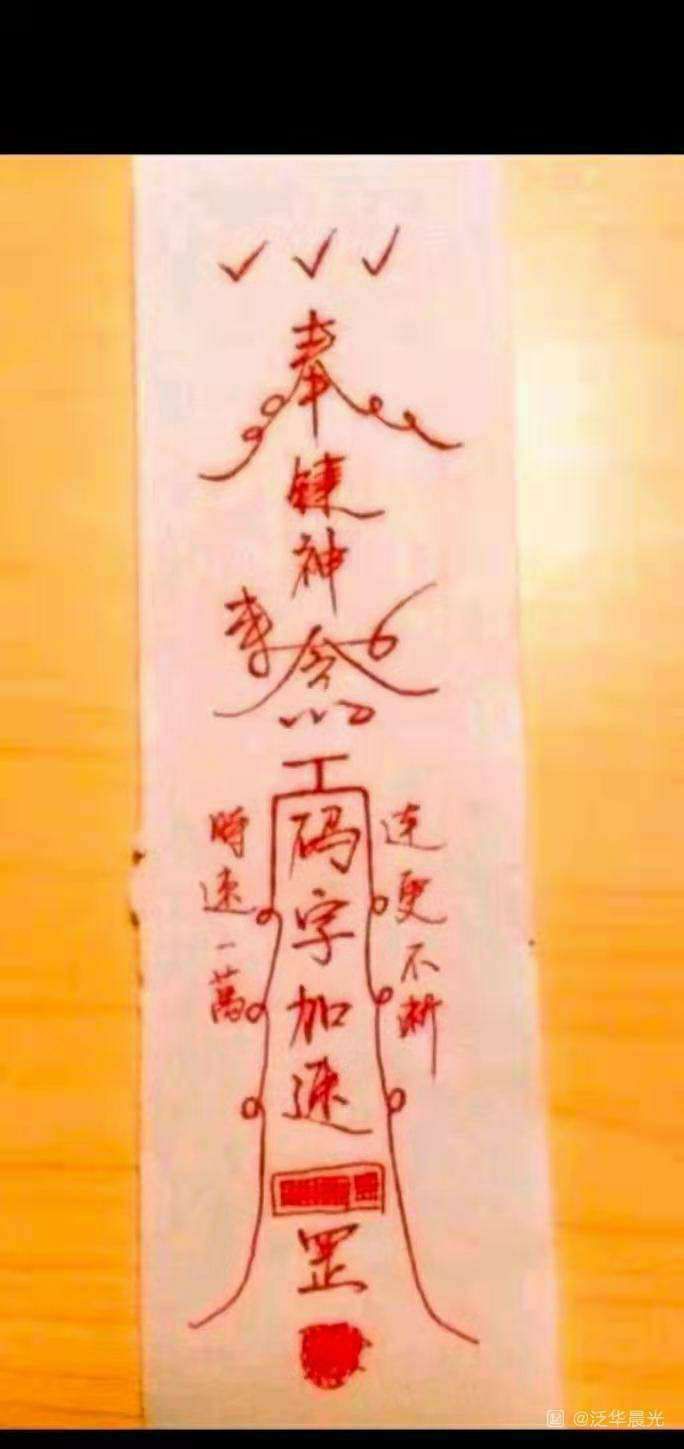 奉
键神
令
码字加速
時速一萬
连更不断
罡
@泛华晨光